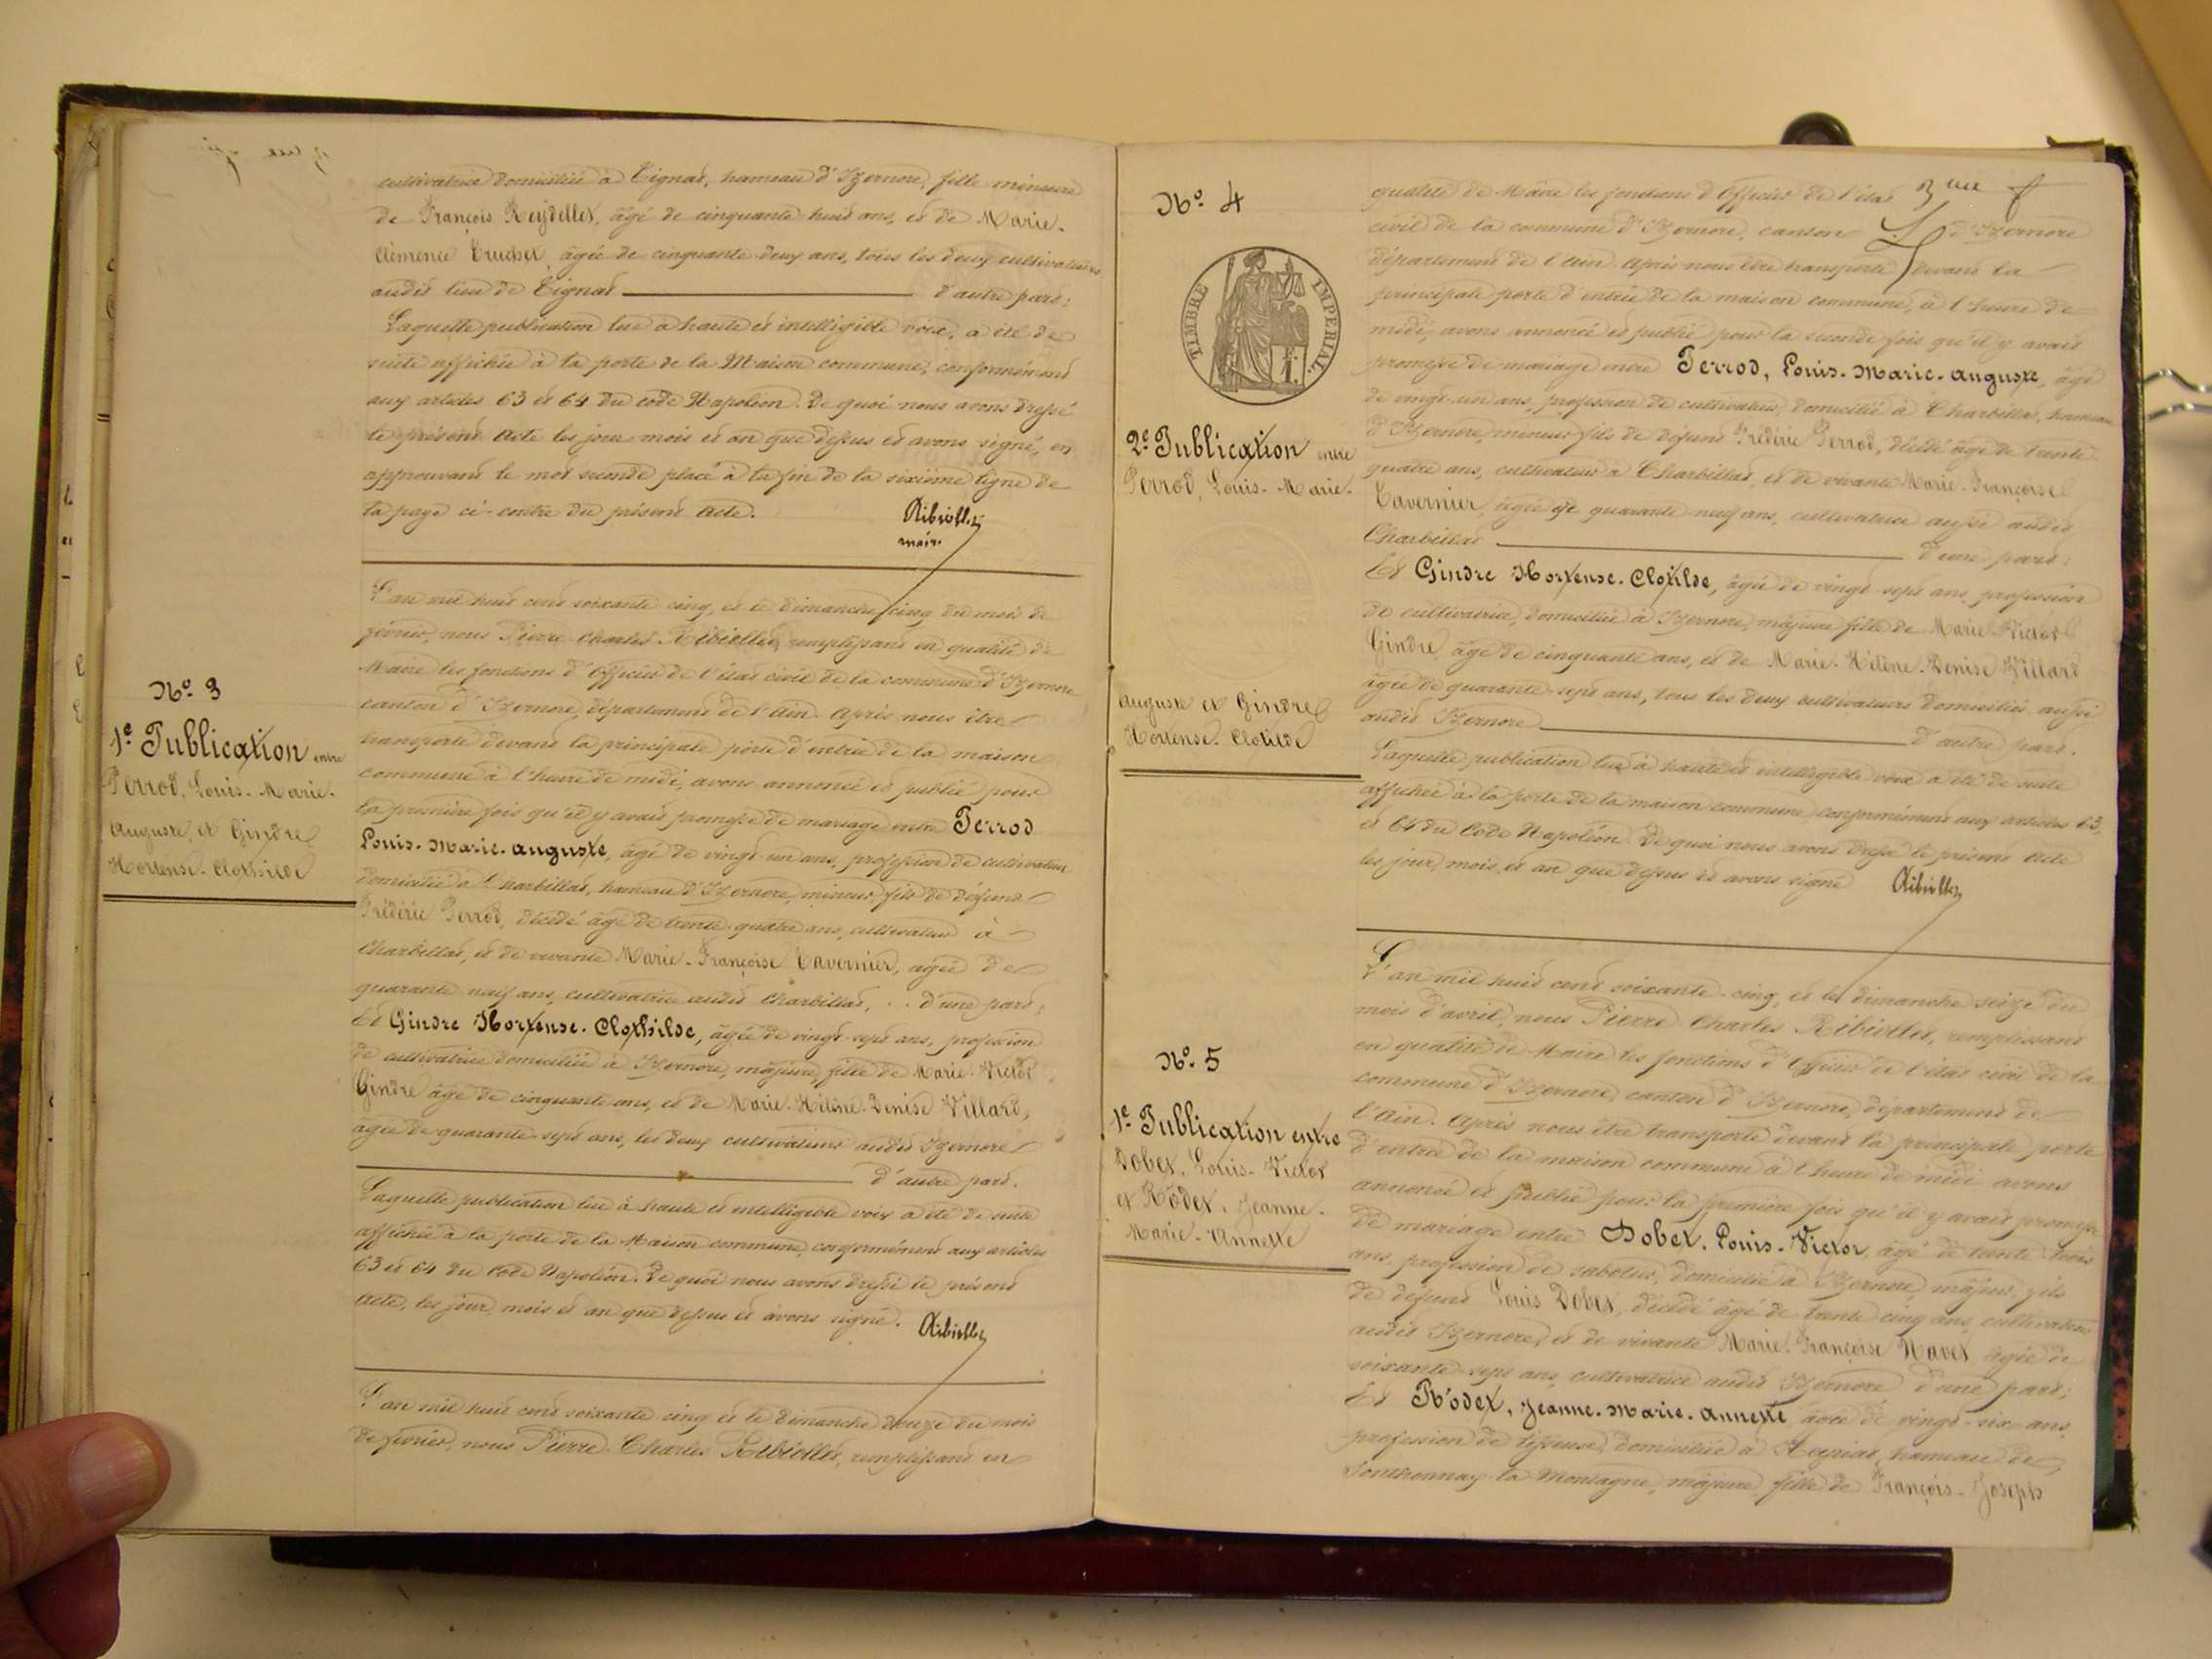 cultivatrice domiciliée à Tignat, hameau d'Izernore, fille mineure
de François Reydellet, âgé de cinquante huit ans, et de Marie-
Clémence Truchet, âgée de cinquante-deux ans, tous les deux cultivateurs
audit lieu de Tignat d'autre part;
Laquelle publication lue à haute et intelligible voix, a été de
suite affichée à la porte de la Maison commune, conformément
aux articles 63 et 64 du code Napoléon. De quoi nous avons dressé
le présent acte les jour mois et an que dessus et avons signé, en
approuvant le mot seconde placé à la fin de la sixième ligne de
la page ci-contre du présent acte. Ribiollet
maire
N° 3
1e Publication entre
Perrod, Louis-Marie-
Auguste, et Gindre
Hortense-Clothilde
L'an mil huit cent soixante cinq, et le dimanche cinq du mois de
février, nous Pierre-Charles Ribiollet, remplissant en qualité de
Maire les fonctions d'officier de l'état civil de la commune d'Izernore
canton d'Izernore, département de l'Ain. Après nous être
transporté devant la principale porte d'entrée de la maison
commune à l'heure de midi, avons annoncé et publié pour
la première fois qu'il y avait promesse de mariage entre Perrod
Louis-Marie-Auguste, âgé de vingt-un ans, profession de cultivateur
domicilié à Charbillat, hameau d'Izernore, mineur, fils de défunt
Frédéric Perrod, décédé âgé de trente-quatre ans, cultivateur à
Charbillat, et de vivante Marie-Françoise Tavernier, âgée de
quarante neuf ans, cultivatrice audit Charbillat, . . d'une part;
Et Gindre Hortense-Clothilde, âgée de vingt-sept ans, profession
de cultivatrice domiciliée à Izernore, majeure, fille de Marie-Victor
Gindre âgé de cinquante ans, et de Marie-Hélène-Denise Villard,
âgée de quarante-sept ans, les deux cultivateurs audit Izernore
d'autre part.
Laquelle publication lue à haute et intelligible voix a été de suite
affichée à la porte de la Maison commune, conformément aux articles
63 et 64 du Code Napoléon. De quoi nous avons dressé le présent
acte, les jour, mois et an que dessus et avons signé. Ribiollet
L'an mil huit cent soixante cinq et le dimanche douze du mois
de février, nous Pierre-Charles Ribiollet, remplissant en
N° 4
TIMBRE IMPÉRIAL
2e Publication entre
Perrod, Louis-Marie-
Auguste et Gindre
Hortense-Clotilde
3me f
qualité de Maire les fonctions d'officier de l'état
civil de la commune d'Izernore, canton d'Izernore
département de l'Ain. Après nous être transporté devant la
principale porte d'entrée de la maison commune, à l'heure de
midi, avons annoncé et publié pour la seconde fois qu'il y avait
promesse de mariage entre Perrod, Louis-Marie-Auguste, âgé
de vingt-un ans, profession de cultivateur, domicilié à Charbillat, hameau
d'Izernore, mineur, fils de défunt Frédéric Perrod, décédé âgé de trente-
quatre ans, cultivateur à Charbillat, et de vivante Marie-Françoise
Tavernier, âgée de quarante-neuf ans, cultivatrice aussi audit
Charbillat d'une part;
Et Gindre Hortense-Clotilde, âgée de vingt-sept ans, profession
de cultivatrice, domiciliée à Izernore, majeure, fille de Marie-Victor
Gindre, âgé de cinquante ans, et de Marie-Hélène-Denise Villard
âgée de quarante-sept ans, tous les deux cultivateurs domiciliés aussi
audit Izernore d'autre part.
Laquelle publication lue à haute et intelligible voix a été de suite
affichée à la porte de la maison commune conformément aux articles 63
et 64 du Code Napoléon. De quoi nous avons dressé le présent acte
les jour, mois et an que dessus et avons signé Ribiollet
N° 5
1e Publication entre
Dobet, Louis-Victor
et Rodet, Jeanne-
Marie-Annette
L'an mil huit cent soixante-cinq, et le dimanche seize du
mois d'avril, nous Pierre Charles Ribiollet, remplissant
en qualité de Maire les fonctions d'officier de l'état civil de la
commune d'Izernore, canton d'Izernore, département de
l'Ain. Après nous être transporté devant la principale porte
d'entrée de la maison commune à l'heure de midi avons
annoncé et publié pour la première fois qu'il y avait promesse
de mariage entre Dobet, Louis-Victor, âgé de trente-trois
ans, profession de sabotier, domicilié à Izernore, majeur, fils
de défunt Louis Dobet, décédé âgé de trente cinq ans, cultivateur
audit Izernore, et de vivante Marie-Françoise Navet âgée de
soixante-sept ans, cultivatrice audit Izernore d'une part;
Et Rodet, Jeanne-Marie-Annette âgée de vingt-six ans,
profession de tisseuse, domiciliée à Heyriat, hameau de
Sonthonnax-la-Montagne, majeure, fille de François-Joseph